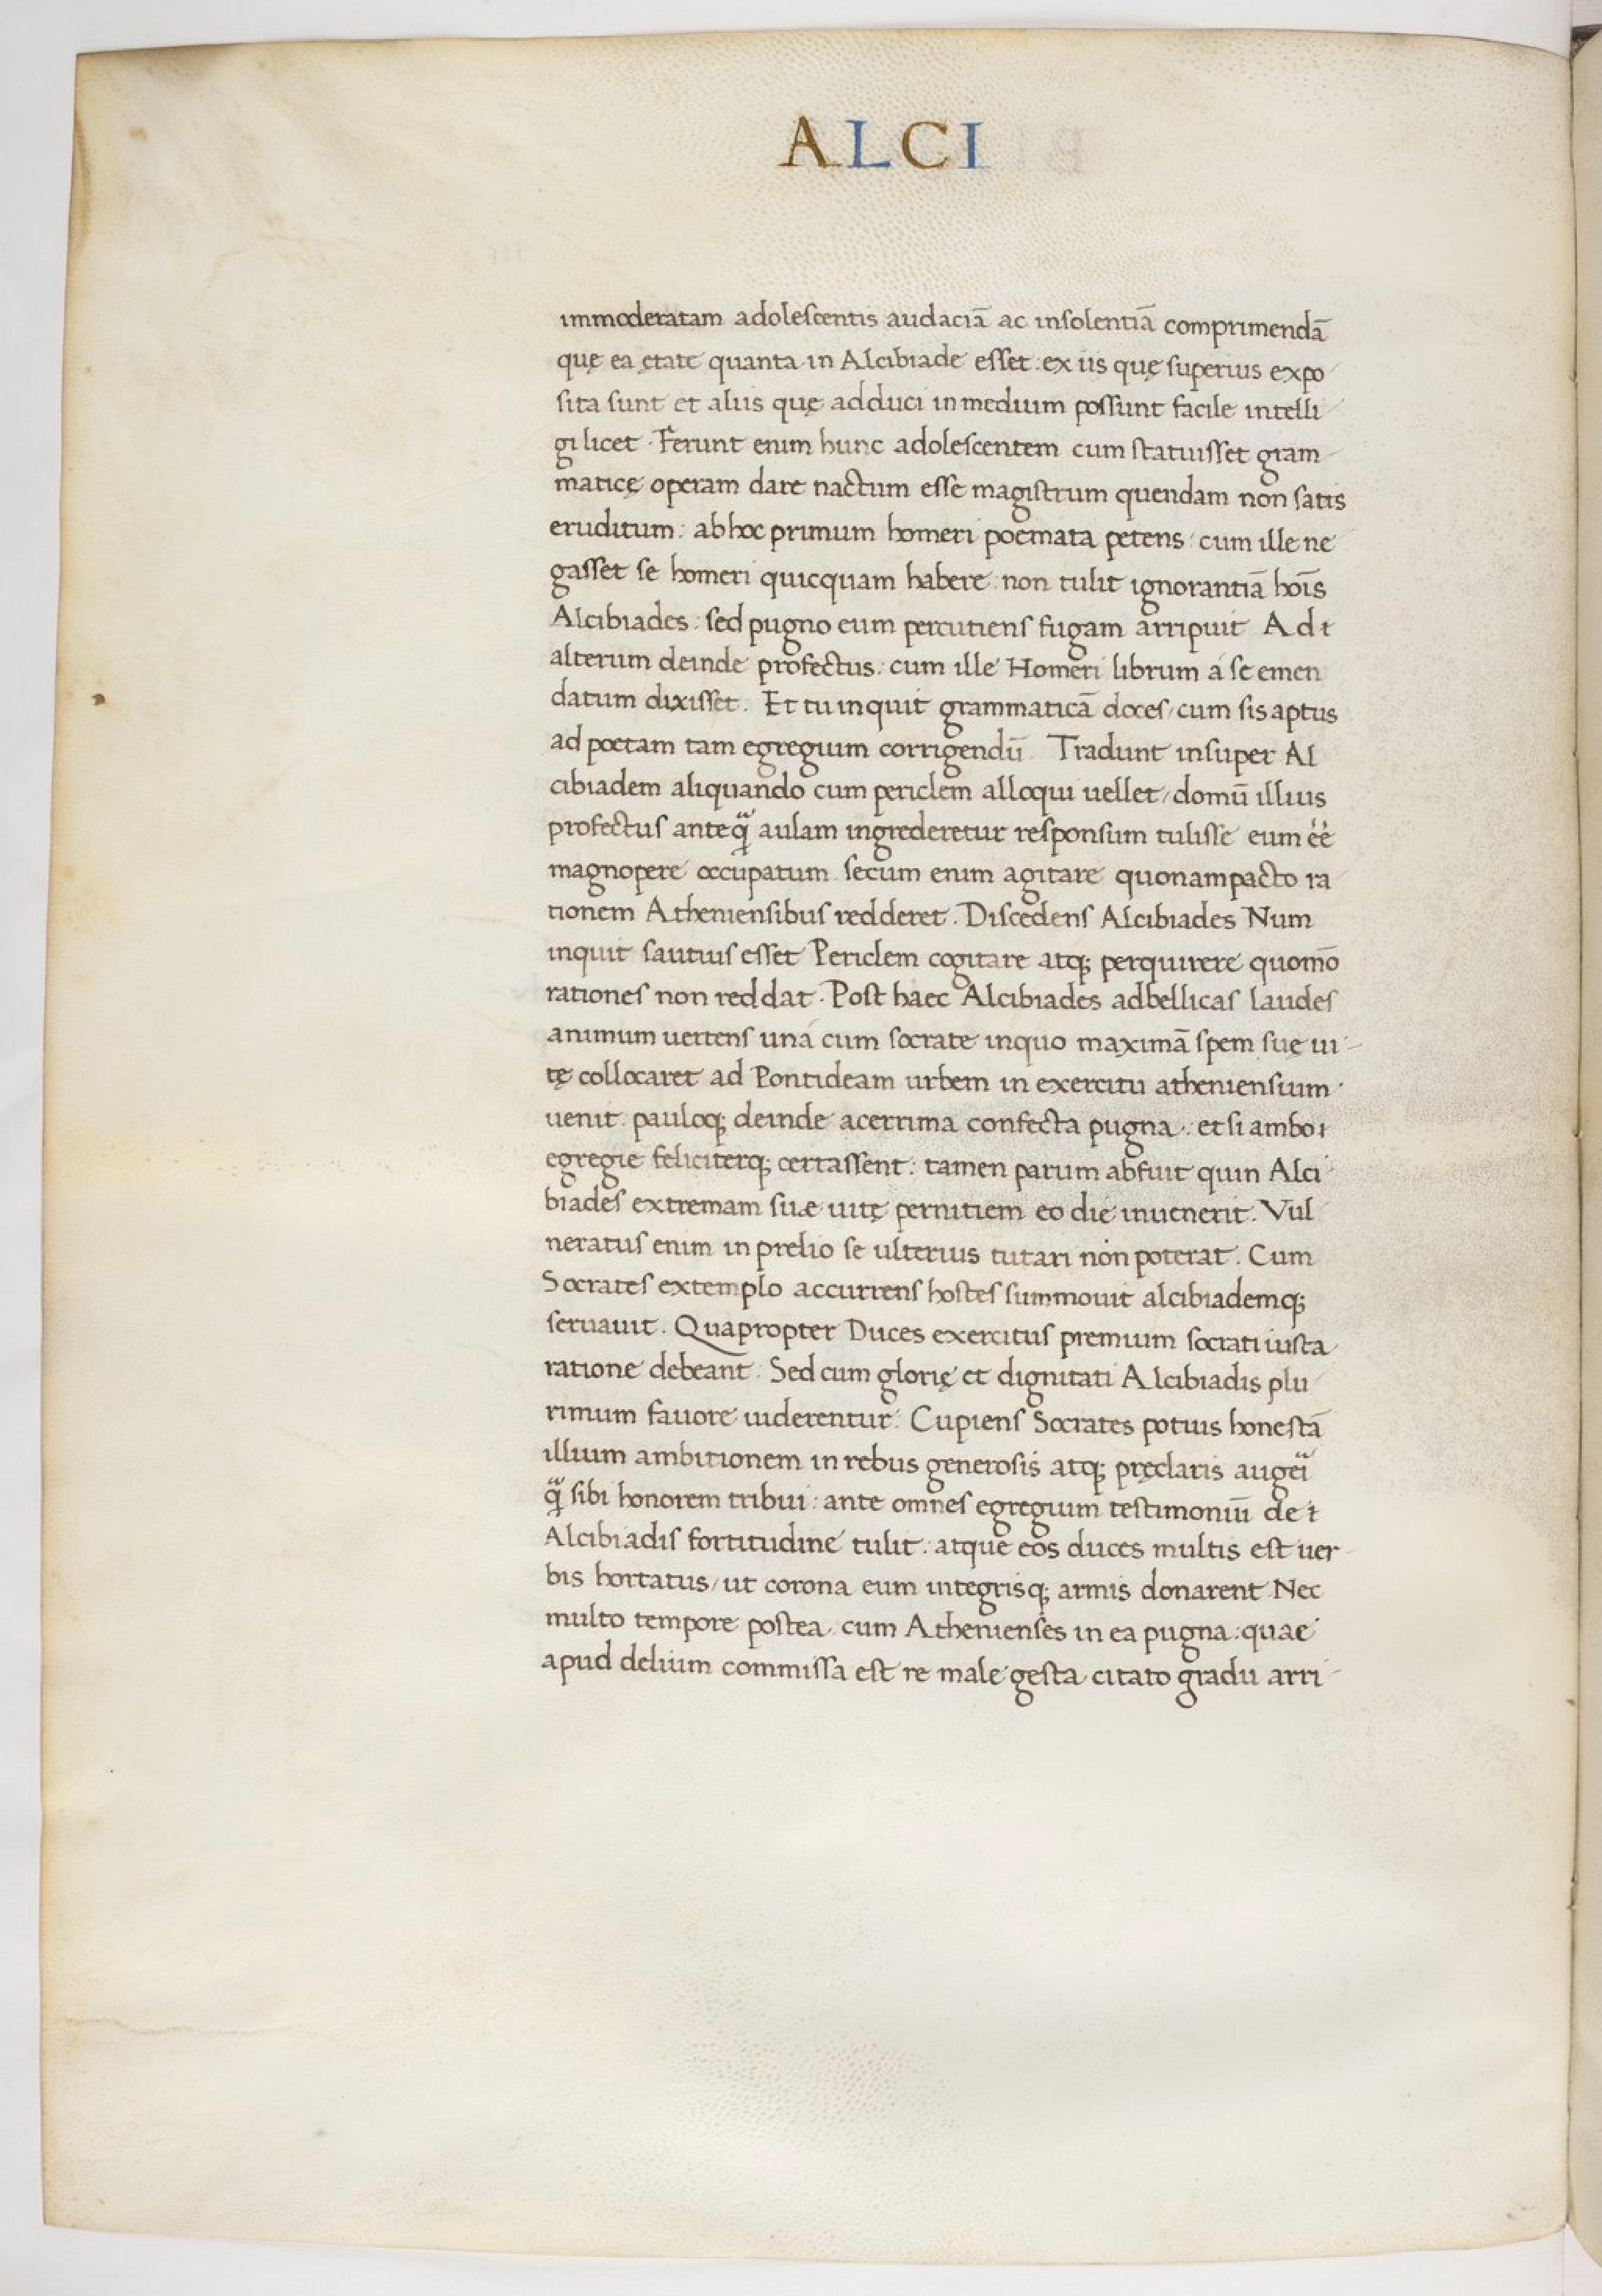 ALCI
immoderatam adolescentis audaciā ac insolentiā comprimendā
quę ea ętate quanta in Alcibiade esset: ex iis quę superius expo
sita sunt et aliis quę adduci in medium possunt facile intelli
gi licet. Ferunt enim hunc adolescentem cum statuisset gram
maticę operam dare nactum esse magistrum quendam non satis
eruditum: ab hoc primum homeri poemata petens: cum ille ne
gasset se homeri quicquam habere: non tulit ignorantiā hoīs
Alcibiades: sed pugno eum percutiens fugam arripuit. Ad
alterum deinde profectus: cum ille Homeri librum a se emen
datum dixisset. Et tu inquit grammaticā doces, cum sis aptus
ad poetam tam egregium corrigendū. Tradunt insuper Al
cibiadem aliquando cum periclem alloqui uellet, domū illius
profectus anteq̃ aulam ingrederetur responsum tulisse eum ee
magnopere occupatum. secum enim agitare quonampacto ra
tionem Atheniensibus redderet. Discedens Alcibiades Num
inquit sautius esset Periclem cogitare atq; perquirere quomō
rationes non reddat. Post haec Alcibiades ad bellicas laudes
animum uertens una cum socrate inquo maximā spem suę ui-
tę collocaret ad Pontideam urbem in exercitu atheniensium
uenit. pauloq; deinde acerrima confecta pugna: et si ambo
egregie feliciterq; certassent: tamen parum abfuit quin Alci
biades extremam suæ uitę pernitiem eo die inuenerit. Vul
neratus enim in prelio se ulterius tutari non poterat. Cum
Socrates extemplo accurrens hostes summouit alcibiademq;
seruauit. Quapropter Duces exercitus premium socrati iusta
ratione debeant. Sed cum glorię et dignitati Alcibiadis plu
rimum fauore uiderentur. Cupiens Socrates potius honestā
illium ambitionem in rebus generosis atq; pręclaris augei
q̃ sibi honorem tribui: ante omnes egregium testimoniū de
Alcibiadis fortitudine tulit: atque eos duces multis est uer-
bis hortatus, ut corona eum integrisq; armis donarent. Nec
multo tempore postea cum Athenienses in ea pugna: quae
apud delium commissa est re male gesta citato gradu arri-